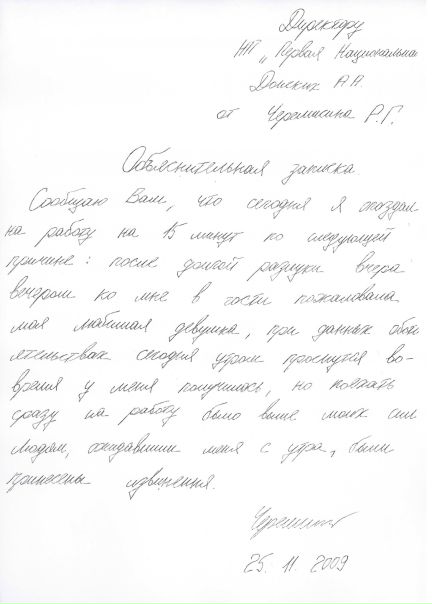 Директору
НП „Первая Национальна
Донских А.А.
от Черемисина Р.Г.
Объяснительная записка
Сообщаю Вам, что сегодня я опоздал
на работу на 15 минут по следующей
причине: после долгой разлуки вчера
вечером ко мне в гости пожаловала
моя любимая девушка, при данных обсто
ятельствах сегодня утром проснуться во-
время у меня получилось, но поехать
сразу на работу было выше моих сил
людям, ожидавшим меня с утра, были
принесены извинения.
25.11.2009